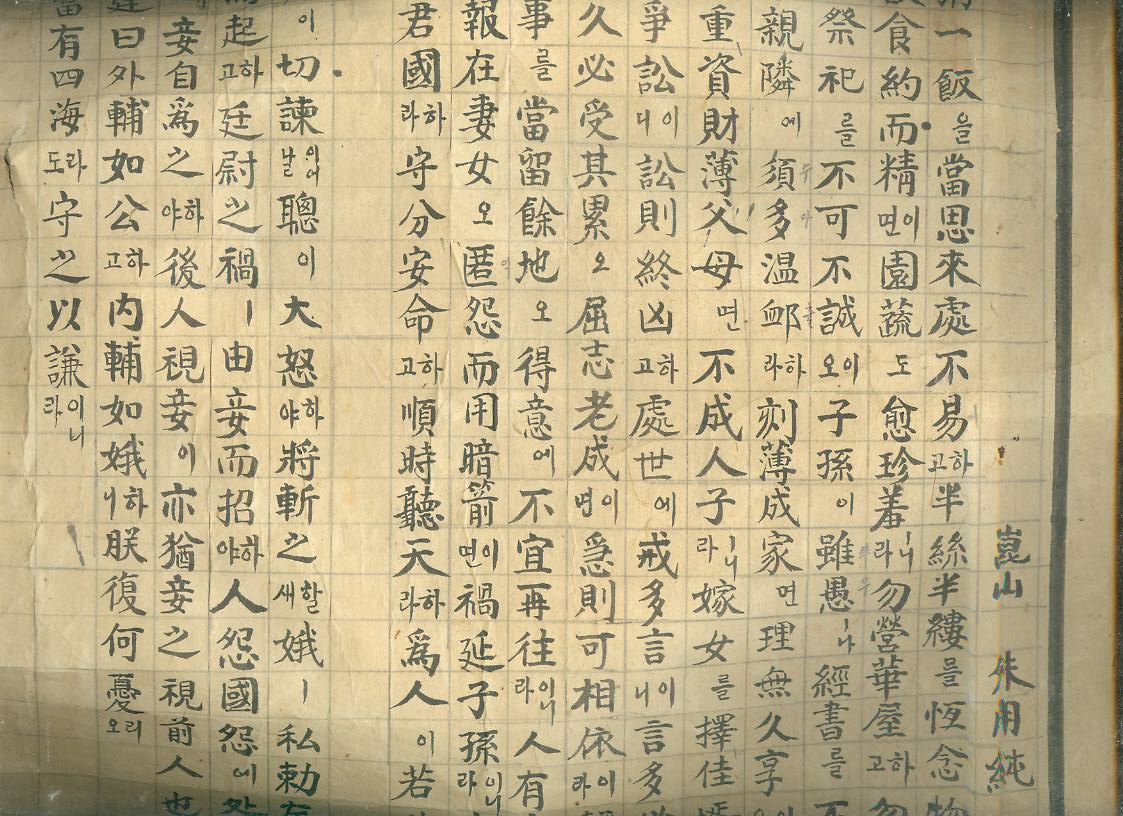 崑山 朱用純
一飯을當思來處不易하고半絲半縷를恆念物
食約而精이면園蔬도愈珍羞ㅣ니라勿營華屋하고勿
祭祀를不可不誠이오子孫이雖愚ㅣ나經書를不
親隣에須多溫卹하라刻薄成家면理無久享
重資財薄父母면不成人子ㅣ니라嫁女를擇佳壻
爭訟이니訟則終凶하고處世에戒多言이니言多
久必受其累오屈志老成이면急則可相依이라
事를當留餘地오得意에不宜再往이니라人有
報在妻女오匿怨而用暗箭이면禍延子孫이니라
君國하라守分安命하고順時聽天하라爲人이若
이切諫이어날聰이大怒하야將斬之할새娥ㅣ私勅
起하고廷尉之禍ㅣ由妾而招하야人怨國怨에
妾自爲之하야後人視妾이亦猶妾之視前人也
曰外輔如公하고内輔如娥하니朕復何憂리오
富有四海라도守之以謙이니라